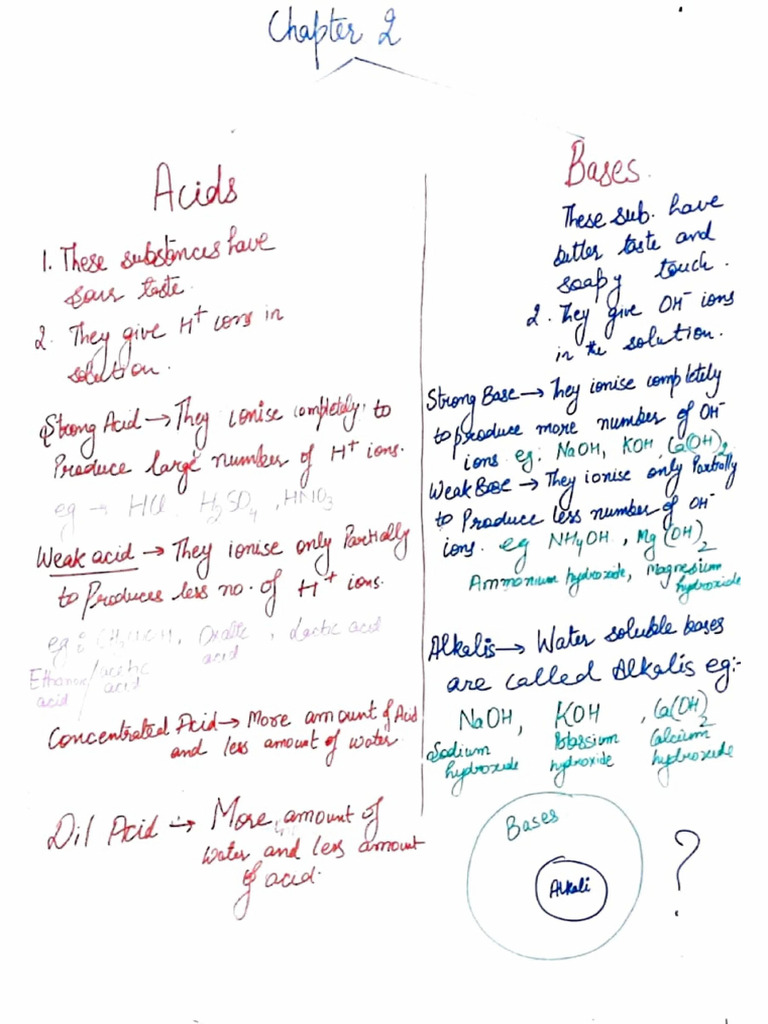 Chapter 2
Acids
1. These substances have
sour taste.
2. They give H⁺ ions in
solution.
Strong Acid → They ionise completely to
Produce large number of H⁺ ions.
eg → HCl, H₂SO₄, HNO₃
Weak acid → They ionise only Partially
to Produces less no. of H⁺ ions.
eg: Oxalic acid, Lactic acid
Ethanoic acid / acetic acid
Concentrated Acid → More amount of Acid
and less amount of water.
Dil Acid → More amount of
water and less amount
of acid.
Bases
These sub. have
bitter taste and
soapy touch.
2. They give OH⁻ ions
in the solution.
Strong Base → They ionise completely
to produce more number of OH⁻
ions eg: NaOH, KOH, Ca(OH)₂
Weak Base → They ionise only Partially
to Produce less number of OH⁻
ions. eg NH4OH, Mg(OH)₂
Ammonium hydroxide, Magnesium hydroxide
Alkalis → Water soluble bases
are called Alkalis eg:-
NaOH, KOH, Ca(OH)₂
Sodium hydroxide Potassium hydroxide Calcium hydroxide
Bases
Alkali
?